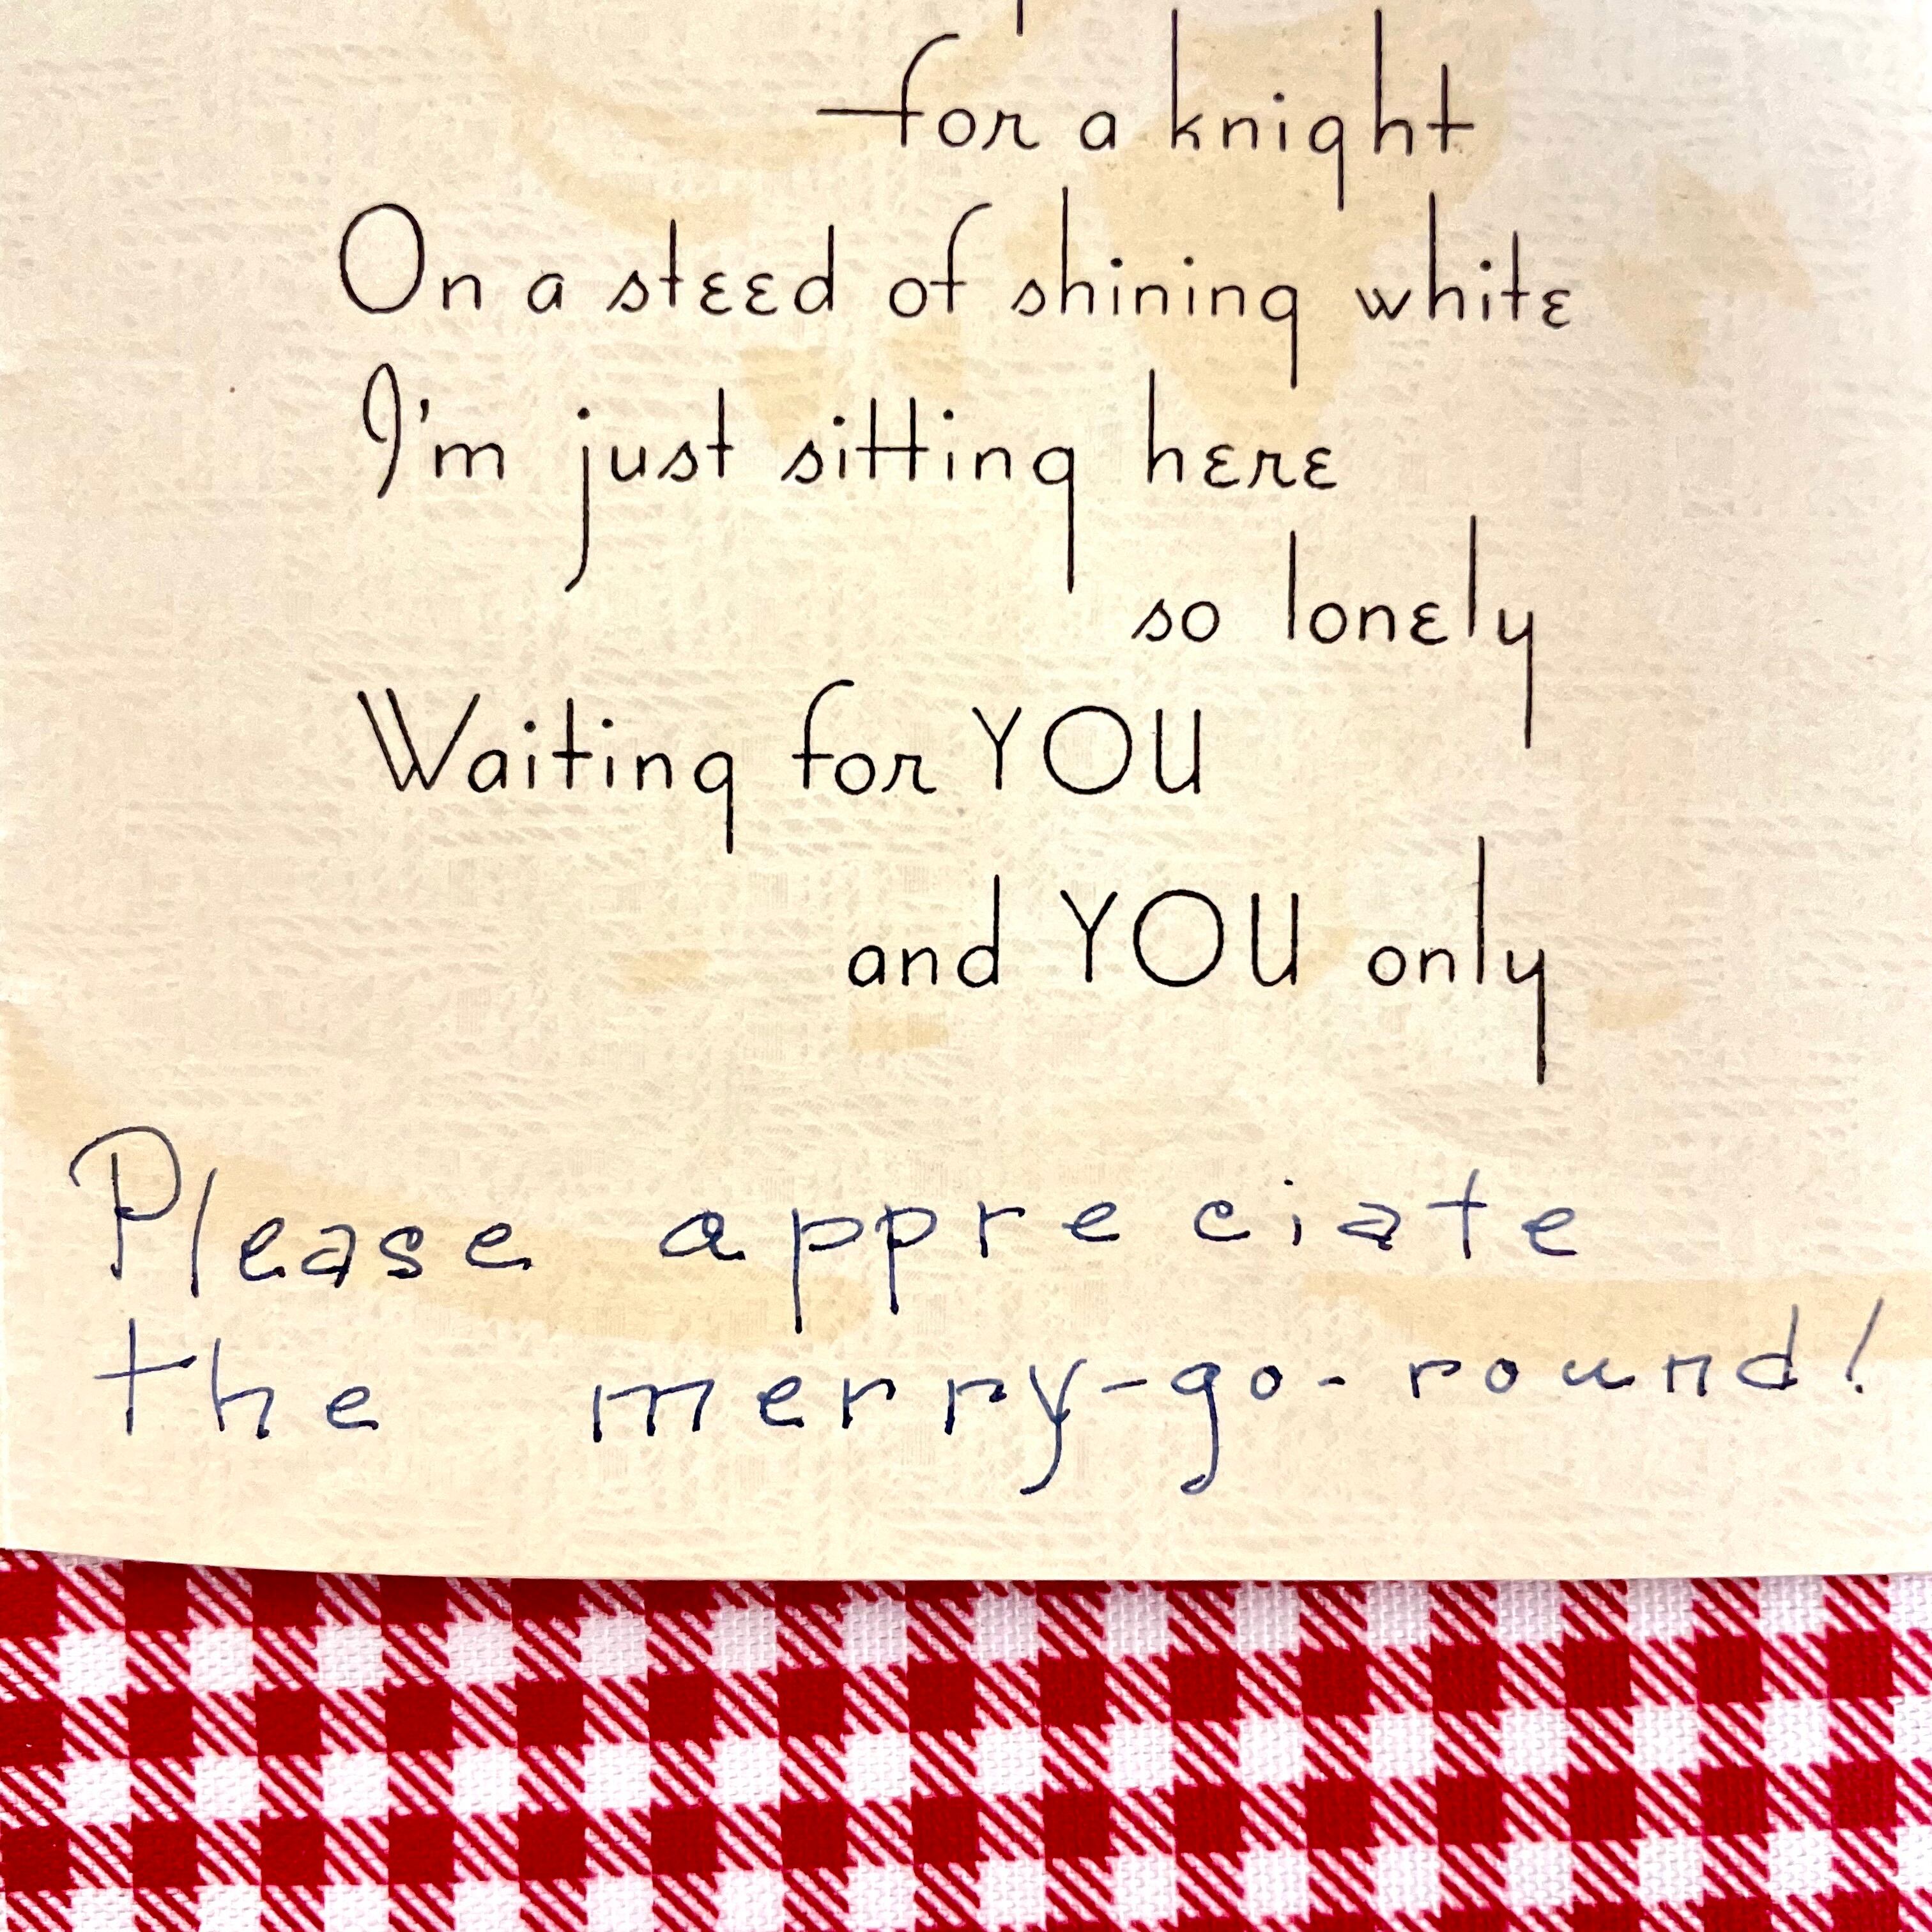 for a knight
On a steed of shining white
I'm just sitting here
so lonely
Waiting for YOU
and YOU only
Please appreciate
the merry-go-round!